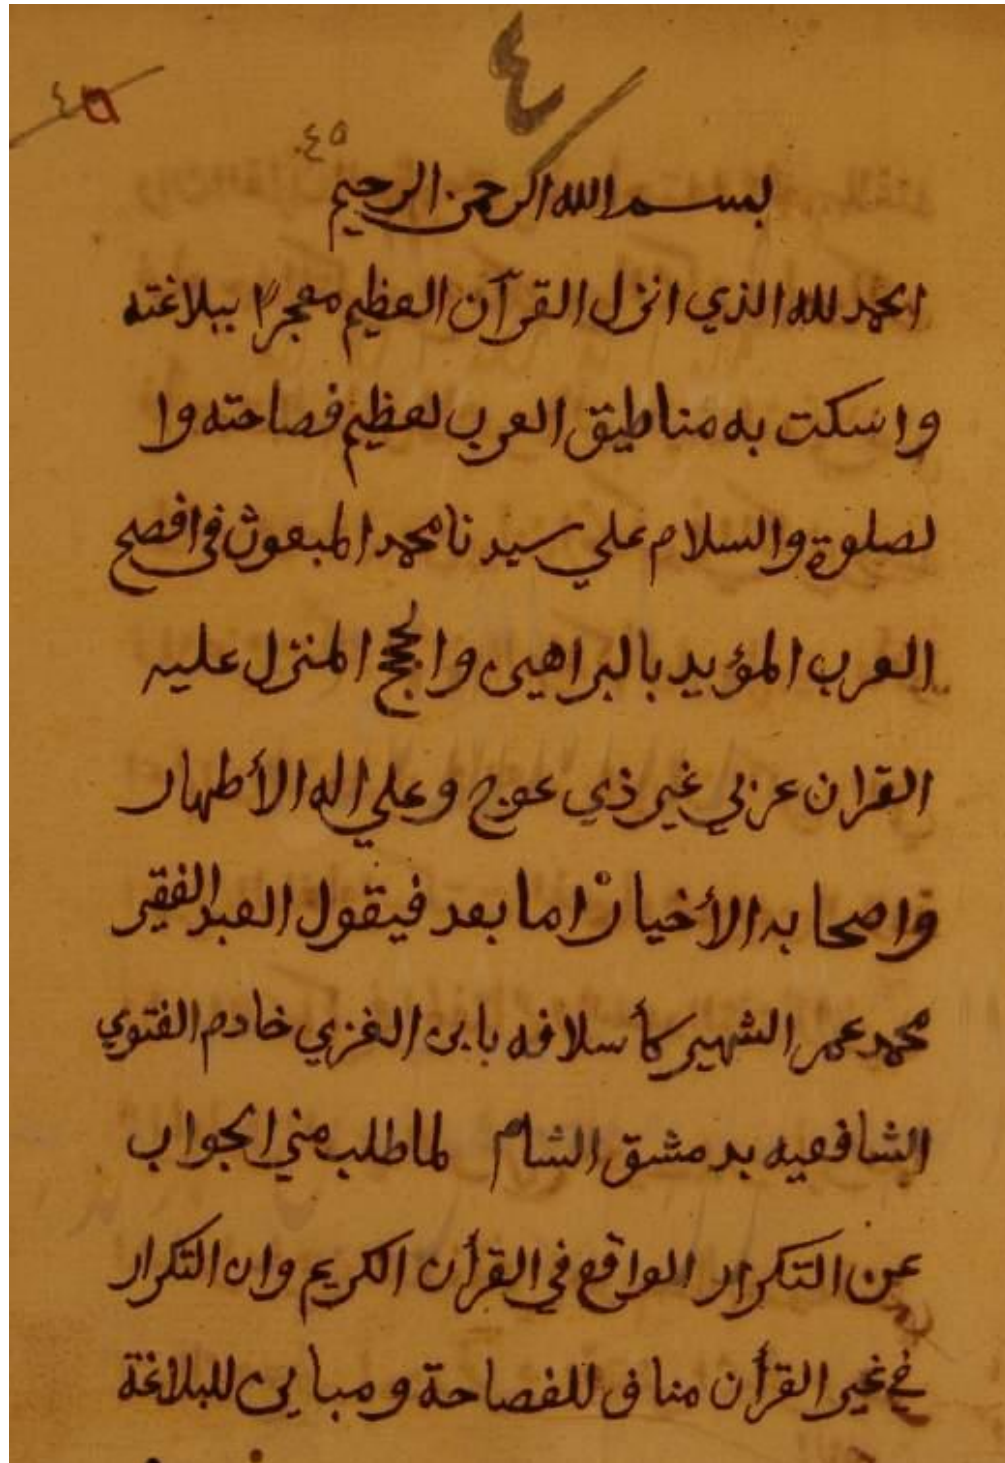 ٤
٤٥
٤٥
بسم الله الرحمن الرحيم
الحمد لله الذي انزل القرآن العظيم معجزا ببلاغته
واسكت به مناطيق العرب لعظيم فصاحته وا
لصلوة والسلام علي سيدنا محمد المبعوث في افصح
العرب المؤيد بالبراهين والحجج المنزل عليه
القران عربي غير ذي عوج وعلي اله الأطهار
واصحابه الأخيار اما بعد فيقول العبد الفقير
محمد عمر الشهير كأسلافه بابن الغزي خادم الفتوي
الشافعيه بدمشق الشام لما طلب مني الجواب
عن التكرار الواقع في القرأن الكريم وان التكرار
في غير القرأن مناف للفصاحة ومباين للبلاغة